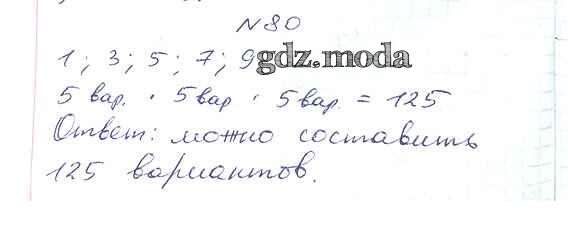 N 80
1; 3; 5; 7; 9 gdz.moda
5 вар. · 5 вар · 5 вар. = 125
Ответ: можно составить
125 вариантов.